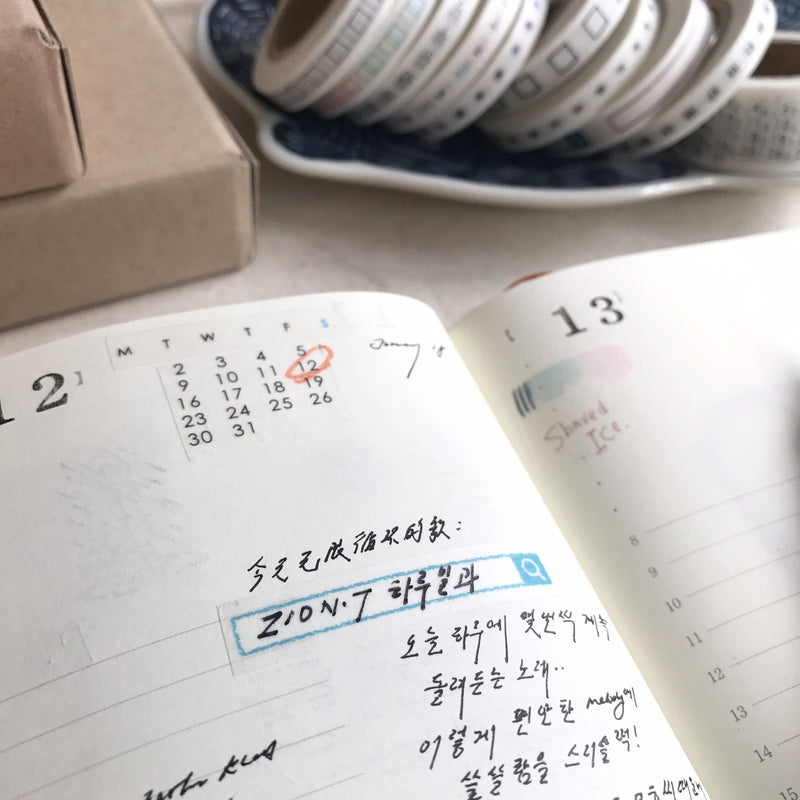 12】
M T W T F S
2 3 4 5
9 10 11 12
16 17 18 19
23 24 25 26
30 31
今天无限循环的歌：
ZION.T 하루일과
오늘 하루에 몇번씩 계속
돌려듣는 노래..
이렇게 편안한 melody에
쓸쓸함을 스리슬쩍!
【 13】
Shaved
Ice.
8
9
10
11
12
13
14
15